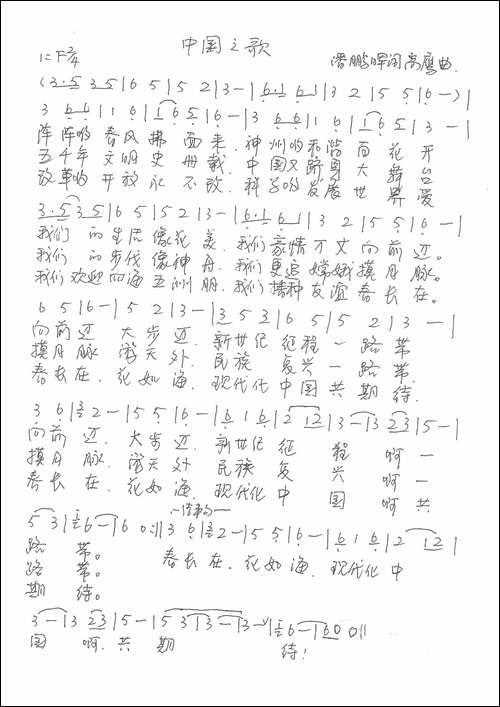 中国之歌
1=F 2/4 曲.
(3·5 3 5|6 5|5 2|3-|6·1 6|3 2|5 5|6-)|
3 6 6|1 6|1 6 5|6-|3 6 6|1 6|1 6 5|3-|
阵阵的 春风 拂 面来.神 州的和谐 百 花 开
五千年 文明 史 册载.中 国又跻身 大 舞 台
改革的 开放 永 不改.科 学的发展 世 界 爱
3·5 3 5|6 5|5 2|3-|6·1 6|3 2|5 5|6-|
我们 的 生活 像花 美.我们豪情 万丈 向前 迈。
我们 的 步伐 像神 舟.我们更追 嫦娥 摸月 脉。
我们欢迎 四海 五洲 朋.我们播种 友谊 春长 在。
6 5|6-|5 2|3-|3 5 3|6 5|5 2|3-|
向前 迈 大步 迈. 新世纪 征程 一路 带
摸月 脉 游天 外. 民族 复兴 一路 带
春长 在. 花如 海. 现代化 中国 共期 待.
3 6|3 2-|5 5|6-|6 1 6|2 1 2|3-|3 2 3|5-|
向前 迈. 大步 迈. 新世纪 征 程 啊 一
摸月 脉. 游天 外 民族 复 兴 啊 一
春长 在. 花如 海. 现代化 中 国 啊 共
结束句
5 3|6-|6 0:||3 6|2-|5 5|6-|6 1 6|2 1 2|
路 带。 春长 在. 花如 海. 现代化 中
路 带。
期 待。
3-|3 2 3|5-|5 3|3-|3-|6-|6 0 0||
国 啊.共 期 待!